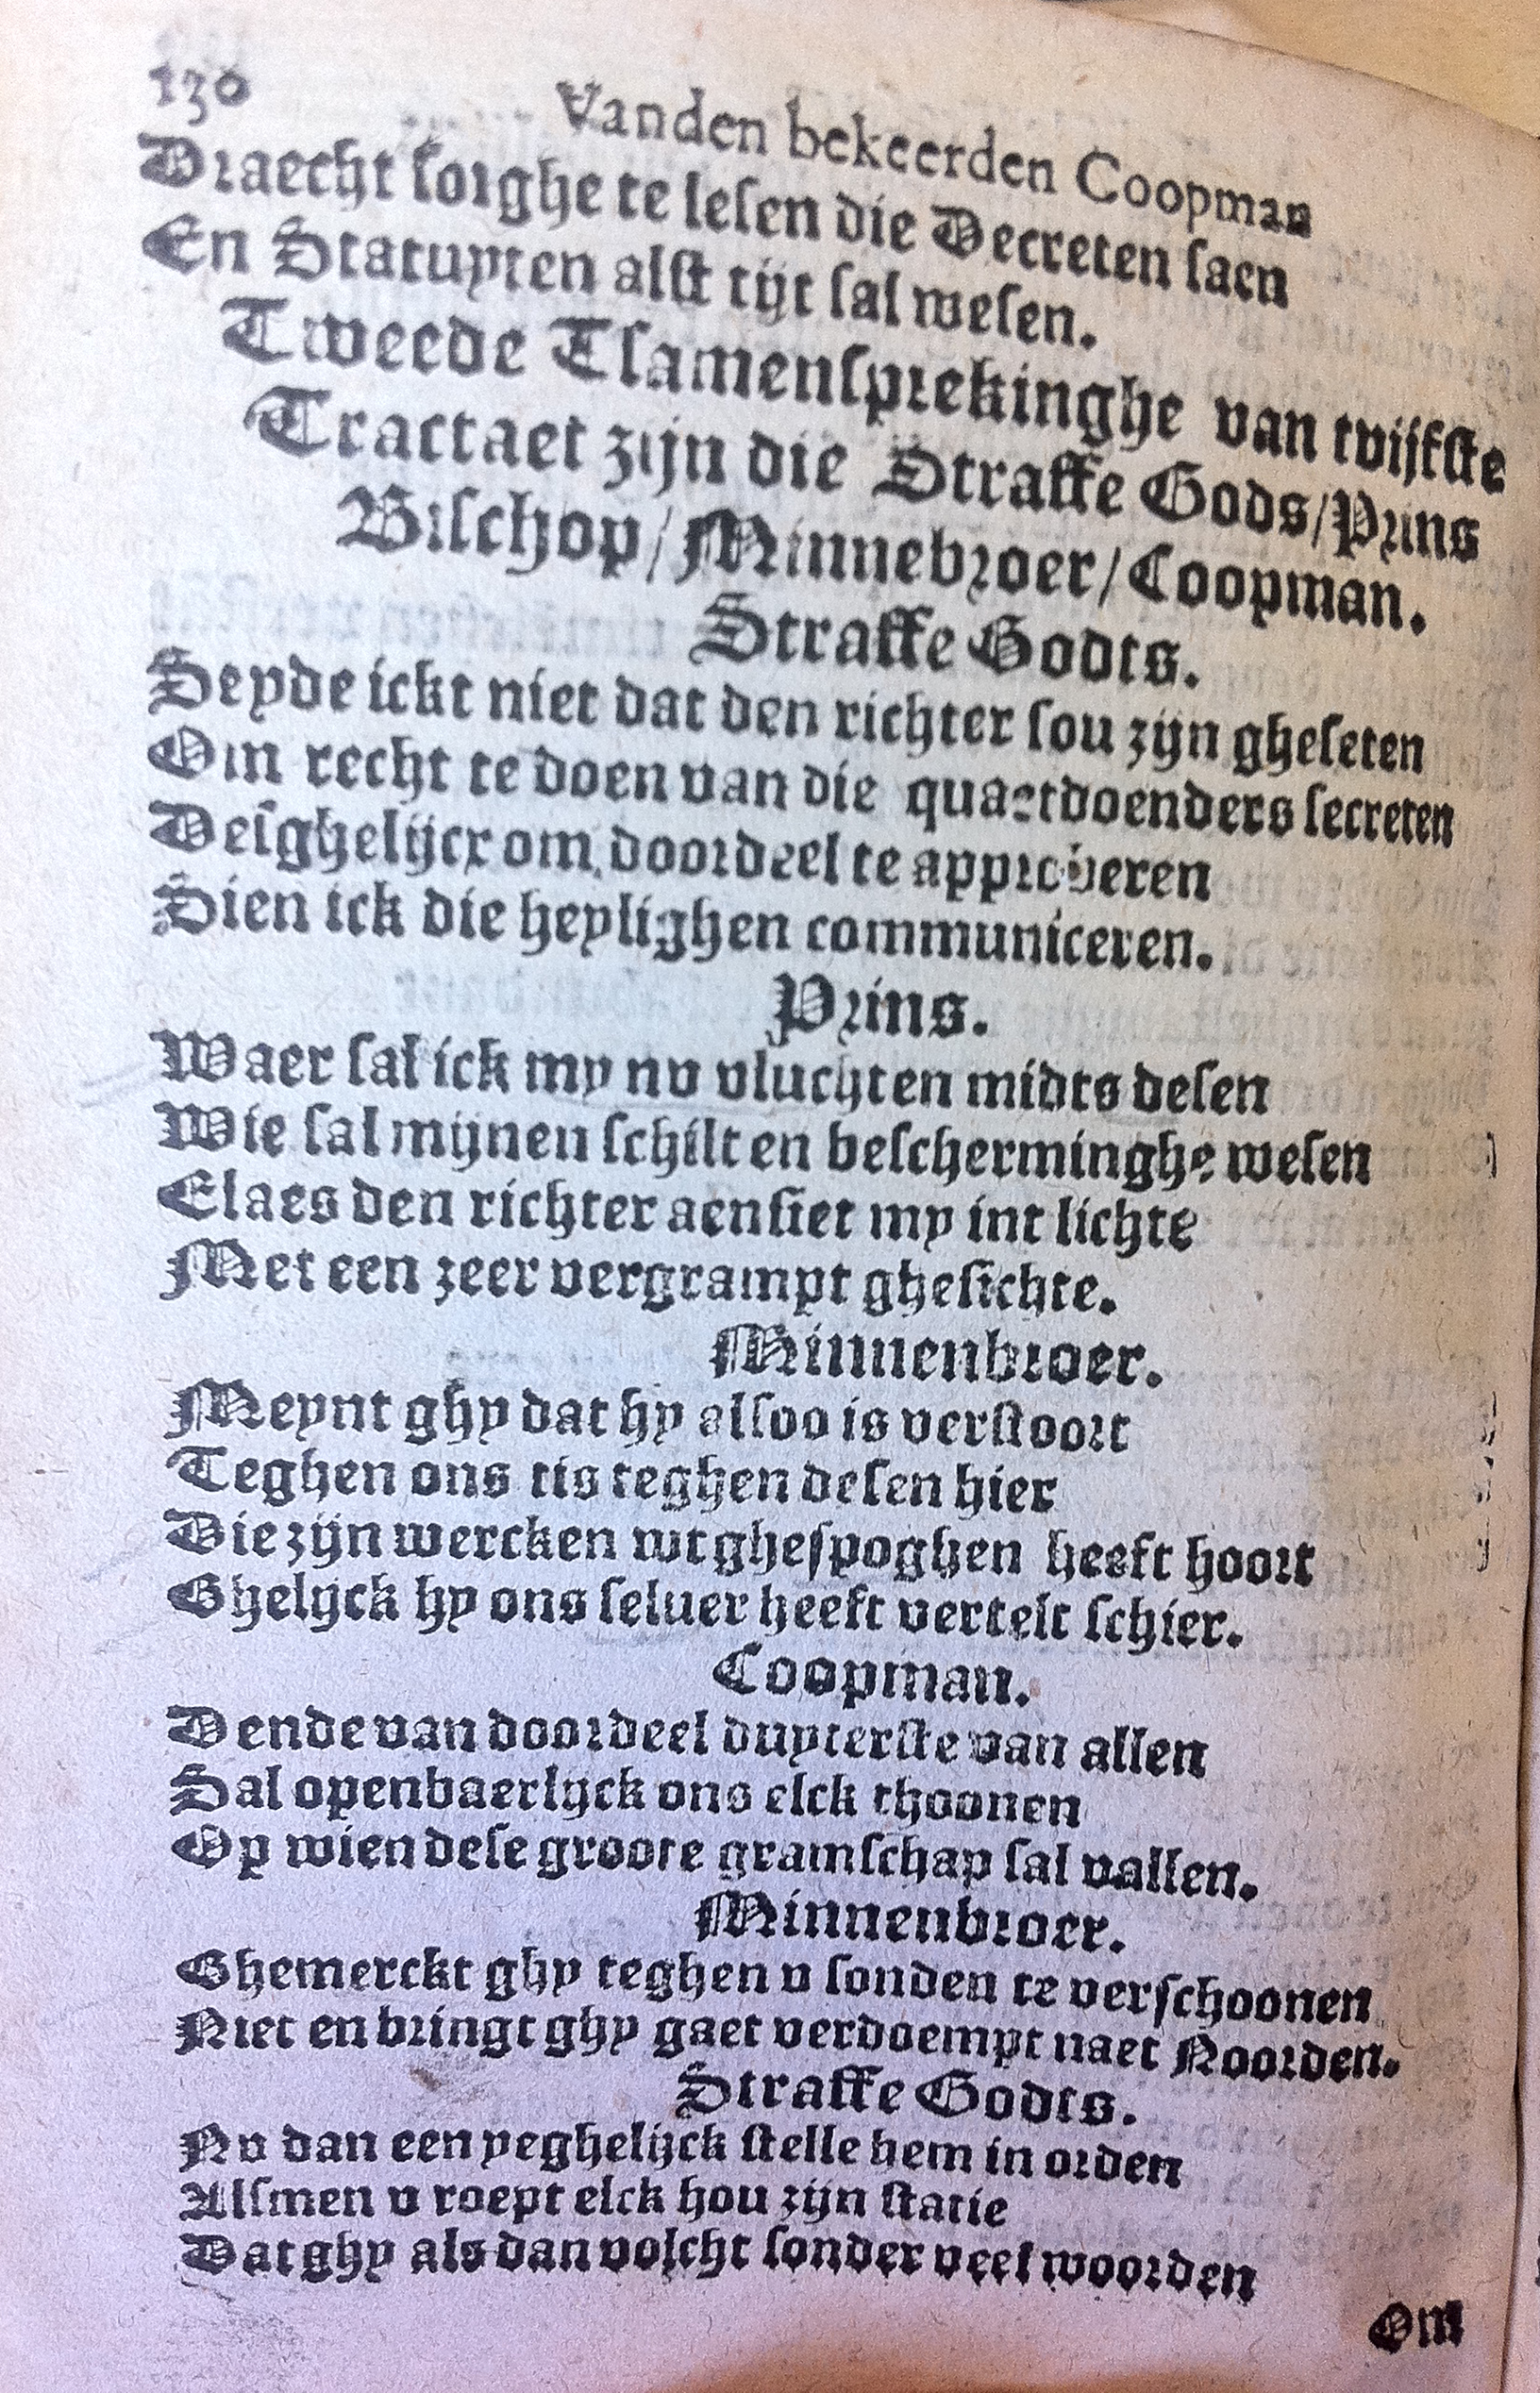 130
Vanden bekeerden Coopman
Draecht sorghe te lesen die Decreten saen
En Statuyten alst tijt sal wesen.
Tweede Tsamensprekinghe van tvijfste
Tractaet zijn die Straffe Gods/Prins
Bischop/Minnebroer/Coopman.
Straffe Godts.
Seyde ickt niet dat den richter sou zijn gheseten
Om recht te doen van die quaetdoenders secreten
Desghelijcx om doordeel te approberen
Sien ick die heylighen communiceren.
Prins.
Waer sal ick my nv vluchten midts desen
Wie sal mijnen schilt en bescherminghe wesen
Elaes den richter aensiet my int lichte
Met een zeer vergrampt ghesichte.
Minnenbroer.
Meynt ghy dat hy alsoo is verstoort
Teghen ons tis teghen desen hier
Die zijn wercken wtghespoghen heeft hoort
Ghelijck hy ons seluer heeft vertelt schier.
Coopman.
Dende van doordeel duyterste van allen
Sal openbaerlijck ons elck thoonen
Op wien dese groote gramschap sal vallen.
Minnenbroer.
Ghemerckt ghy teghen v sonden te verschoonen
Niet en bringt ghy gaet verdoempt naet Noorden.
Straffe Godts.
Nv dan een yeghelijck stelle hem in orden
Alsmen v roept elck hou zijn statie
Dat ghy als dan volcht sonder veel woorden
Om